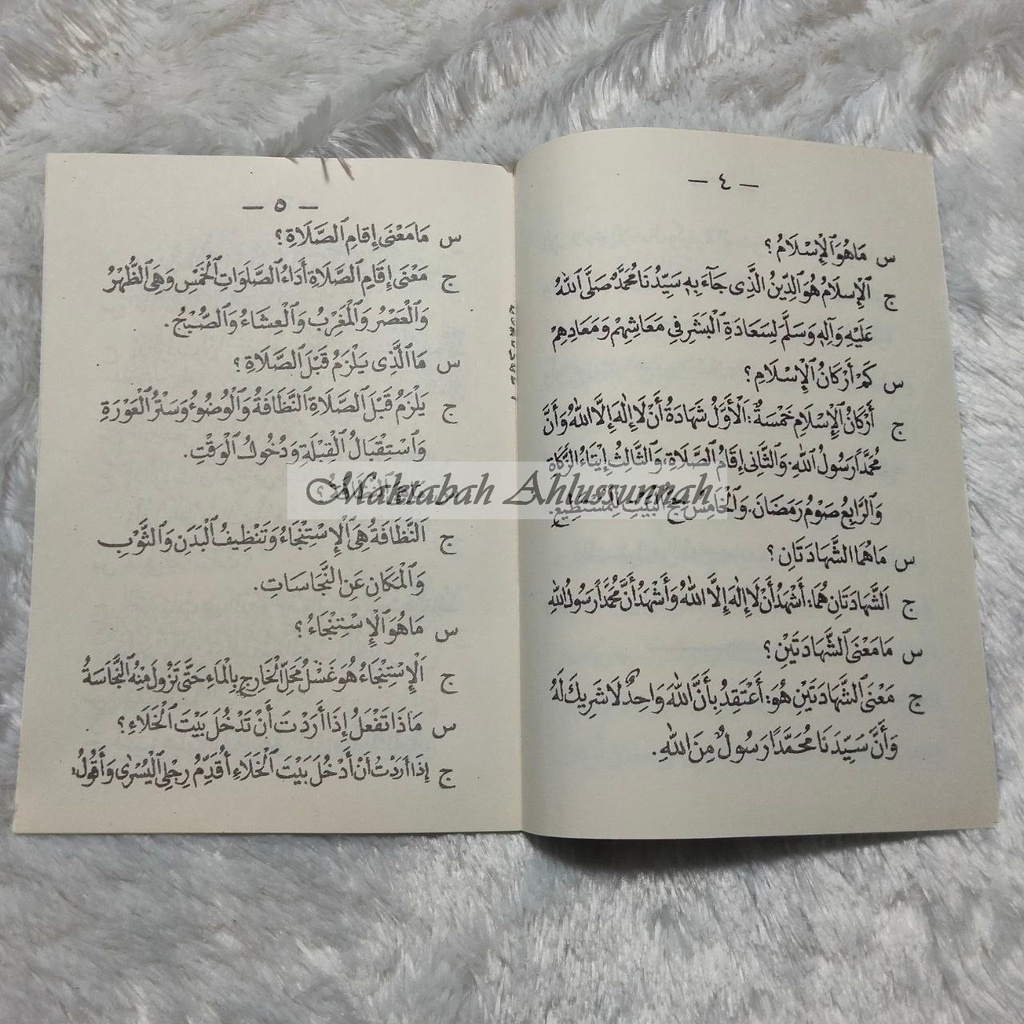 — ٤ —
س مَا هُوَ ٱلْإِسْلَامُ؟
ج ٱلْإِسْلَامُ هُوَ ٱلدِّينُ ٱلَّذِى جَآءَ بِهِ سَيِّدُنَا مُحَمَّدٌ صَلَّى ٱللهُ
عَلَيْهِ وَآلِهِ وَسَلَّمَ لِسَعَادَةِ ٱلْبَشَرِ فِى مَعَاشِهِمْ وَمَعَادِهِمْ
س كَمْ أَرْكَانُ ٱلْإِسْلَامِ؟
ج أَرْكَانُ ٱلْإِسْلَامِ خَمْسَةٌ: ٱلْأَوَّلُ شَهَادَةُ أَنْ لَا إِلٰهَ إِلَّا ٱللهُ وَأَنَّ
مُحَمَّدًا رَسُولُ ٱللهِ. وَٱلثَّانِى إِقَامُ ٱلصَّلَاةِ، وَٱلثَّالِثُ إِيتَاءُ ٱلزَّكَاةِ
وَٱلرَّابِعُ صَوْمُ رَمَضَانَ. وَٱلْخَامِسُ حَجُّ ٱلْبَيْتِ لِلْمُسْتَطِيعِ.
س مَا هُمَا ٱلشَّهَادَتَانِ؟
ج ٱلشَّهَادَتَانِ هُمَا: أَشْهَدُ أَنْ لَا إِلٰهَ إِلَّا ٱللهُ وَأَشْهَدُ أَنَّ مُحَمَّدًا رَسُولُ ٱللهِ
س مَا مَعْنَى ٱلشَّهَادَتَيْنِ؟
ج مَعْنَى ٱلشَّهَادَتَيْنِ هُوَ: أَعْتَقِدُ بِأَنَّ ٱللهَ وَاحِدٌ لَا شَرِيكَ لَهُ
وَأَنَّ سَيِّدَنَا مُحَمَّدًا رَسُولٌ مِنَ ٱللهِ.
— ٥ —
س مَا مَعْنَى إِقَامِ ٱلصَّلَاةِ؟
ج مَعْنَى إِقَامِ ٱلصَّلَاةِ أَدَاءُ ٱلصَّلَوَاتِ ٱلْخَمْسِ وَهِىَ ٱلظُّهْرُ
وَٱلْعَصْرُ وَٱلْمَغْرِبُ وَٱلْعِشَاءُ وَٱلصُّبْحُ.
س مَا ٱلَّذِى يَلْزَمُ قَبْلَ ٱلصَّلَاةِ؟
ج يَلْزَمُ قَبْلَ ٱلصَّلَاةِ ٱلنَّظَافَةُ وَٱلْوُضُوءُ وَسَتْرُ ٱلْعَوْرَةِ
وَٱسْتِقْبَالُ ٱلْقِبْلَةِ وَدُخُولُ ٱلْوَقْتِ.
Maktabah Ahlussunnah
ج ٱلنَّظَافَةُ هِىَ ٱلْإِسْتِنْجَاءُ وَتَنْظِيفُ ٱلْبَدَنِ وَٱلثَّوْبِ
وَٱلْمَكَانِ عَنِ ٱلنَّجَاسَاتِ.
س مَا هُوَ ٱلْإِسْتِنْجَاءُ؟
ج ٱلْإِسْتِنْجَاءُ هُوَ غَسْلُ مَحَلِّ ٱلْخَارِجِ بِالْمَاءِ حَتَّى تَزُولَ مِنْهُ ٱلنَّجَاسَةُ
س مَاذَا تَفْعَلُ إِذَا أَرَدْتَ أَنْ تَدْخُلَ بَيْتَ ٱلْخَلَاءِ؟
ج إِذَا أَرَدْتُ أَنْ أَدْخُلَ بَيْتَ ٱلْخَلَاءِ أُقَدِّمُ رِجْلِى ٱلْيُسْرٰى وَأَقُولُ: